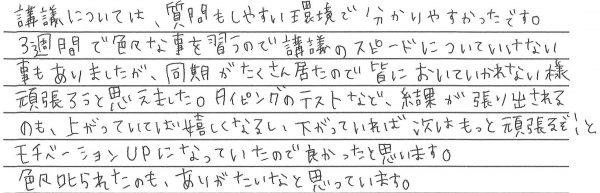 講議については、質問もしやすい環境で分かりやすかったです。
3週間で色々な事を習うので講議のスピードについていけない
事もありましたが、同期がたくさん居たので皆においていかれない様
頑張ろうと思えました。タイピングのテストなど、結果が張り出される
のも、上がっていてば嬉しくなるし、下がっていれば次はもっと頑張るぞ！と
モチベーションUPになっていたので良かったと思います。
色々叱られたのも、ありがたいなと思っています。